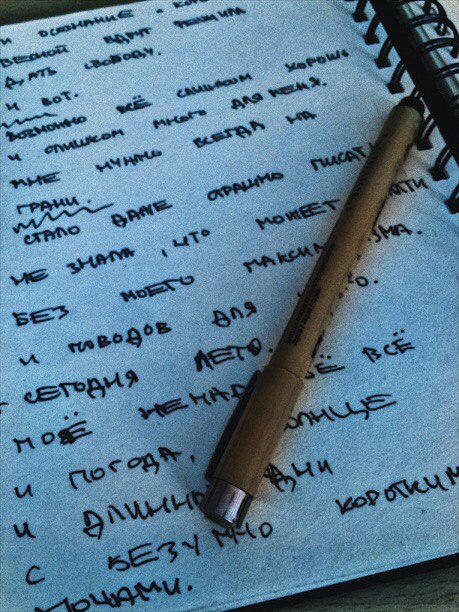 И ОСОЗНАНИЕ -
ВЕСНОЙ ВДРУГ РЕШИЛА
ДАТЬ СВОБОДУ.
И ВОТ.
ВОЗМОЖНО ВСЁ СЛИШКОМ ХОРОШО
И СЛИШКОМ МНОГО ДЛЯ МЕНЯ.
МНЕ НУЖНО ВСЕГДА НА
ГРАНИ.
СТАЛО ДАЖЕ СТРАШНО ПИСАТЬ
НЕ ЗНАЛА, ЧТО МОЖЕТ
БЕЗ МОЕГО
И ПОВОДОВ ДЛЯ
СЕГОДНЯ ЛЕТО.
МОЁ ВСЁ
И ПОГОДА,
И ДНИ
С БЕЗУМНО КОРОТКИМ
НОЧАМИ.